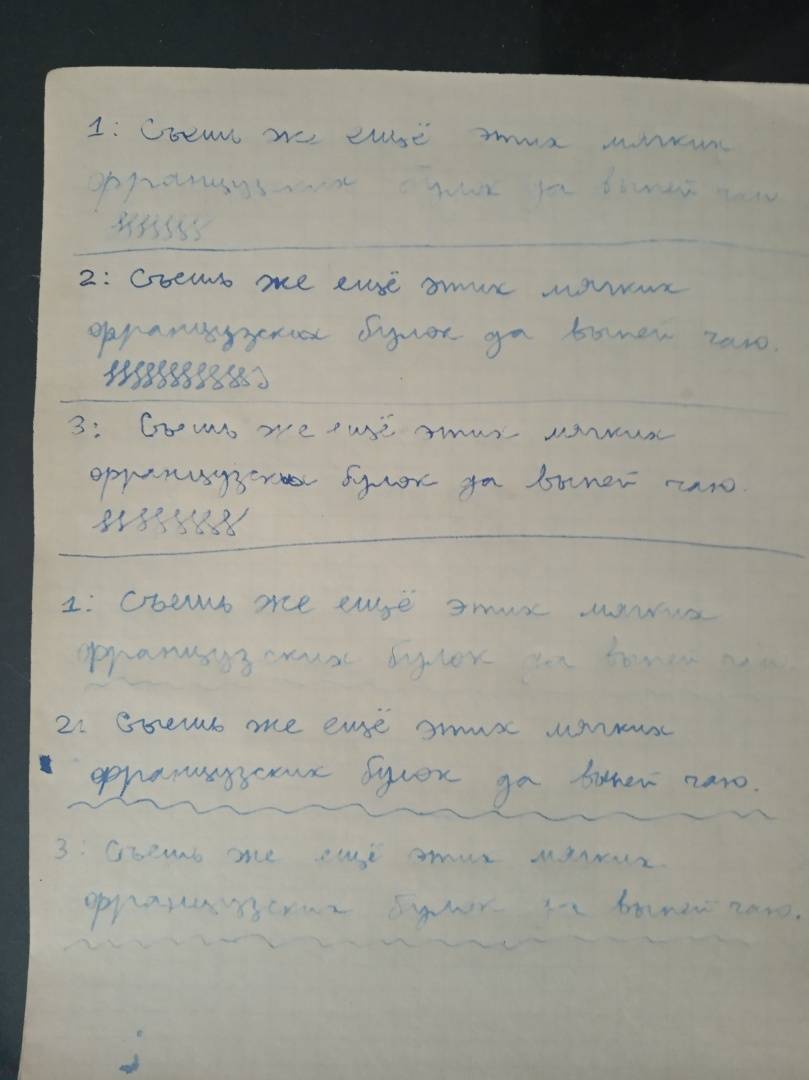 1: Съешь же ещё этих мягких
французских булок да выпей чаю
2: Съешь же ещё этих мягких
французских булок да выпей чаю.
3: Съешь же ещё этих мягких
французских булок да выпей чаю.
1: Съешь же ещё этих мягких
французских булок да выпей чаю.
2: Съешь же ещё этих мягких
французских булок да выпей чаю.
3: Съешь же ещё этих мягких
французских булок да выпей чаю.